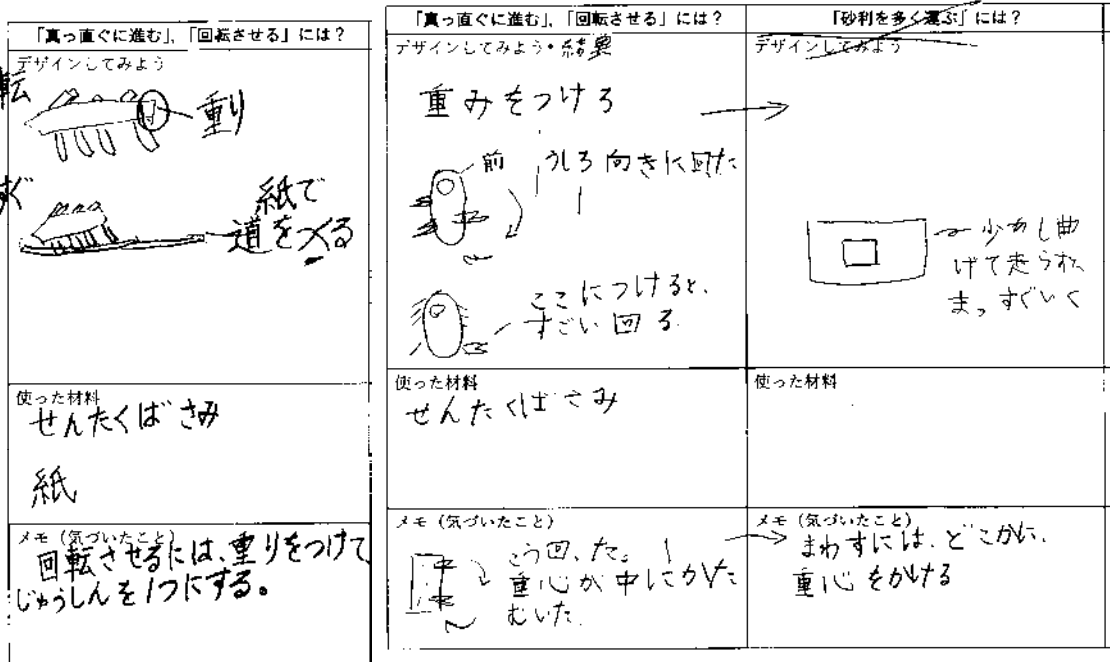 「真っ直ぐに進む」、「回転させる」には？
デザインしてみよう
転
重り
すぐ
紙で
道をつくる
使った材料
せんたくばさみ
紙
メモ（気づいたこと）
回転させるには、重りをつけて
じゅうしんを1つにする。
「真っ直ぐに進む」、「回転させる」には？
デザインしてみよう・結果
重みをつける
前
うしろ向きに回た
ここにつけると、
すごい回る
使った材料
せんたくばさみ
メモ（気づいたこと）
こう回った。
重心が中にかた
むいた
「砂利を多く運ぶ」には？
デザインしてみよう
少カし曲
げて走らすと
まっすぐいく
使った材料
メモ（気づいたこと）
まわすには、どこかに、
重心をかける